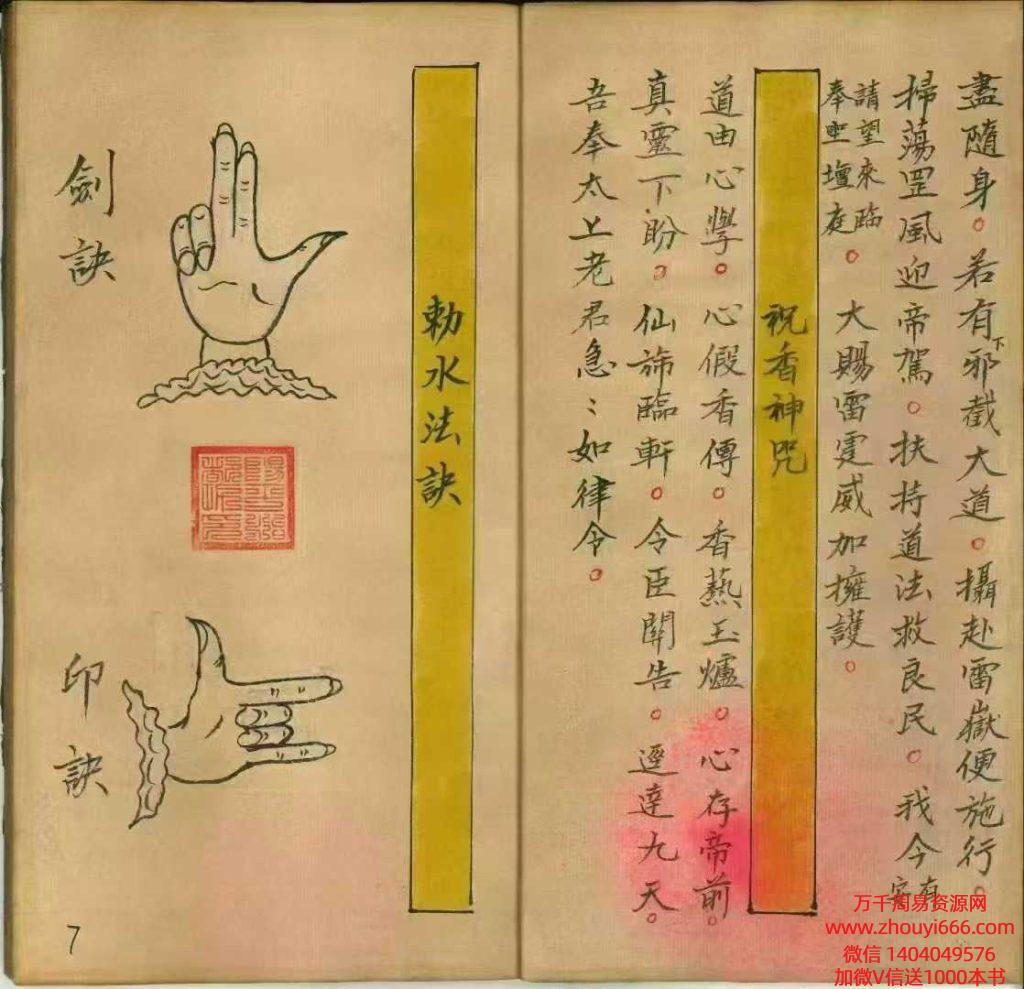 盡隨身。若有下邪截大道。攝赴雷嶽便施行。
掃蕩罡風迎帝駕。扶持道法救良民。我今有
請望來臨
奉聖壇庭。大賜雷霆威加擁護。
祝香神咒
道由心學。心假香傳。香爇玉爐。心存帝前。
真靈下盼。仙旆臨軒。令臣關告。逕達九天。
吾奉太上老君急:如律令。
勅水法訣
劍訣
印訣
7
万千周易资源网
www.zhouyi666.com
微信 1404049576
加微V信送1000本书